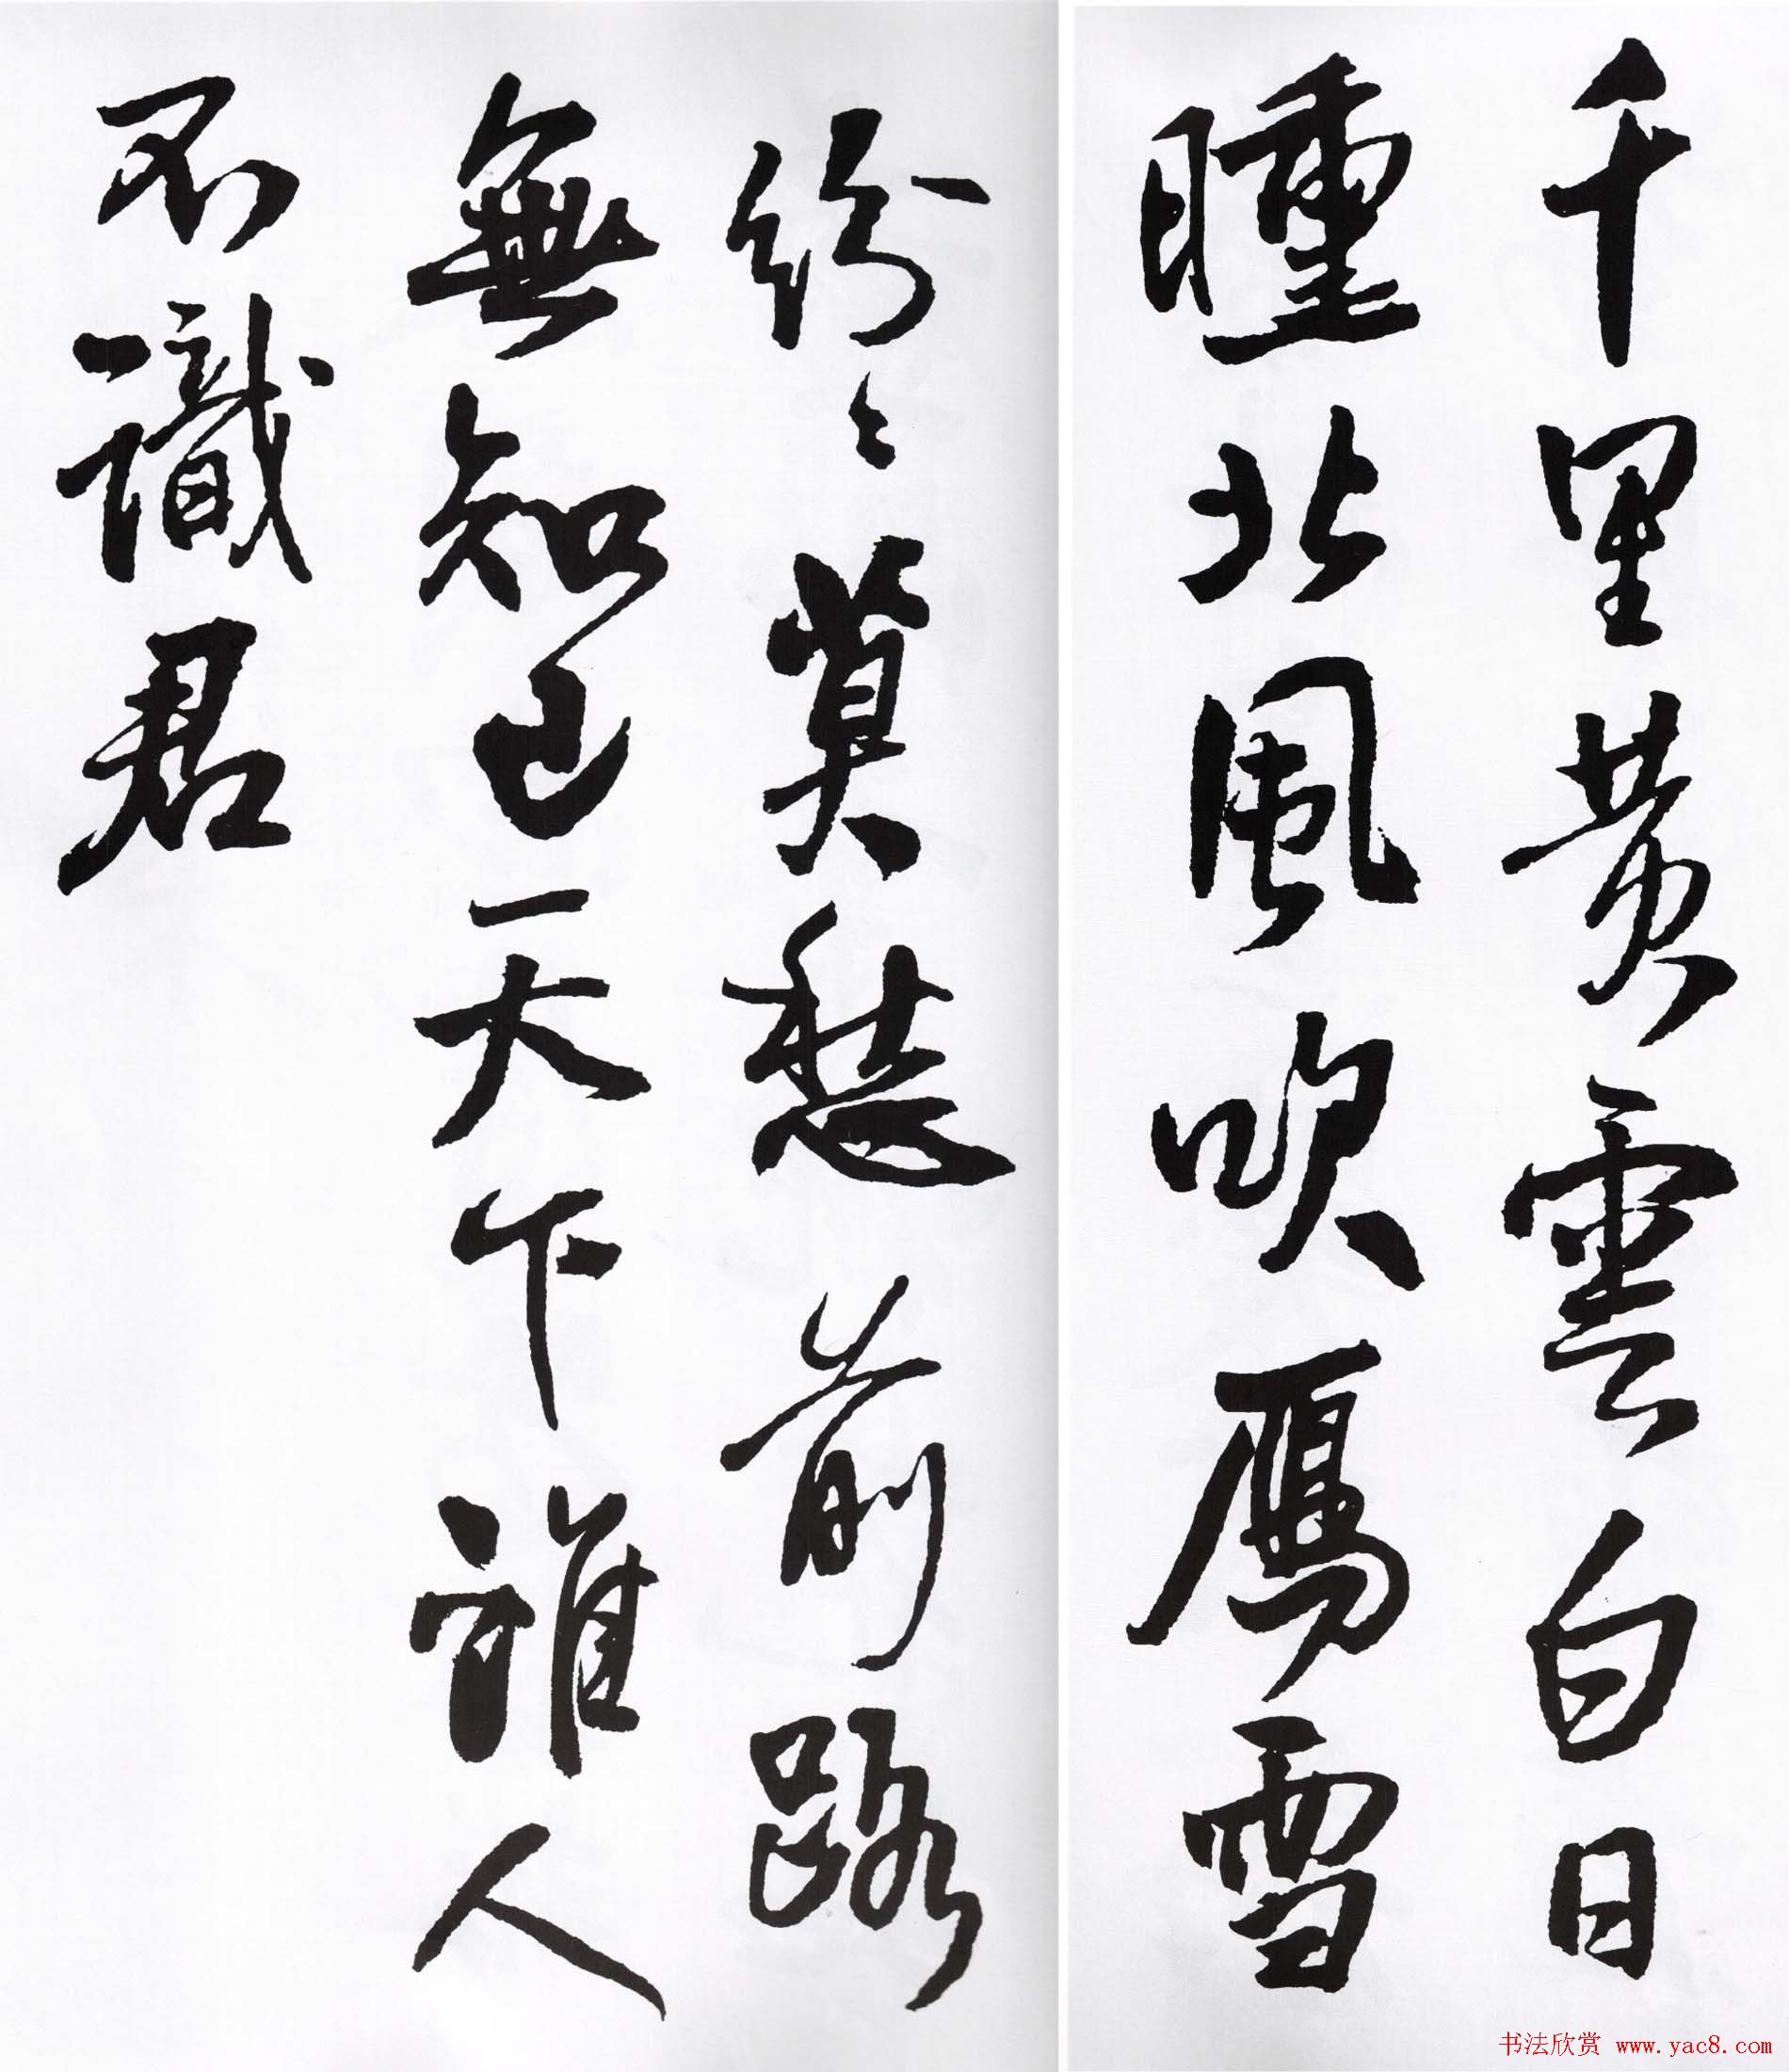 千里黄雲白日
曛北風吹鴈雪
紛〻莫愁前路
無知己天下誰人
不識君
书法欣赏 www.yac8.com